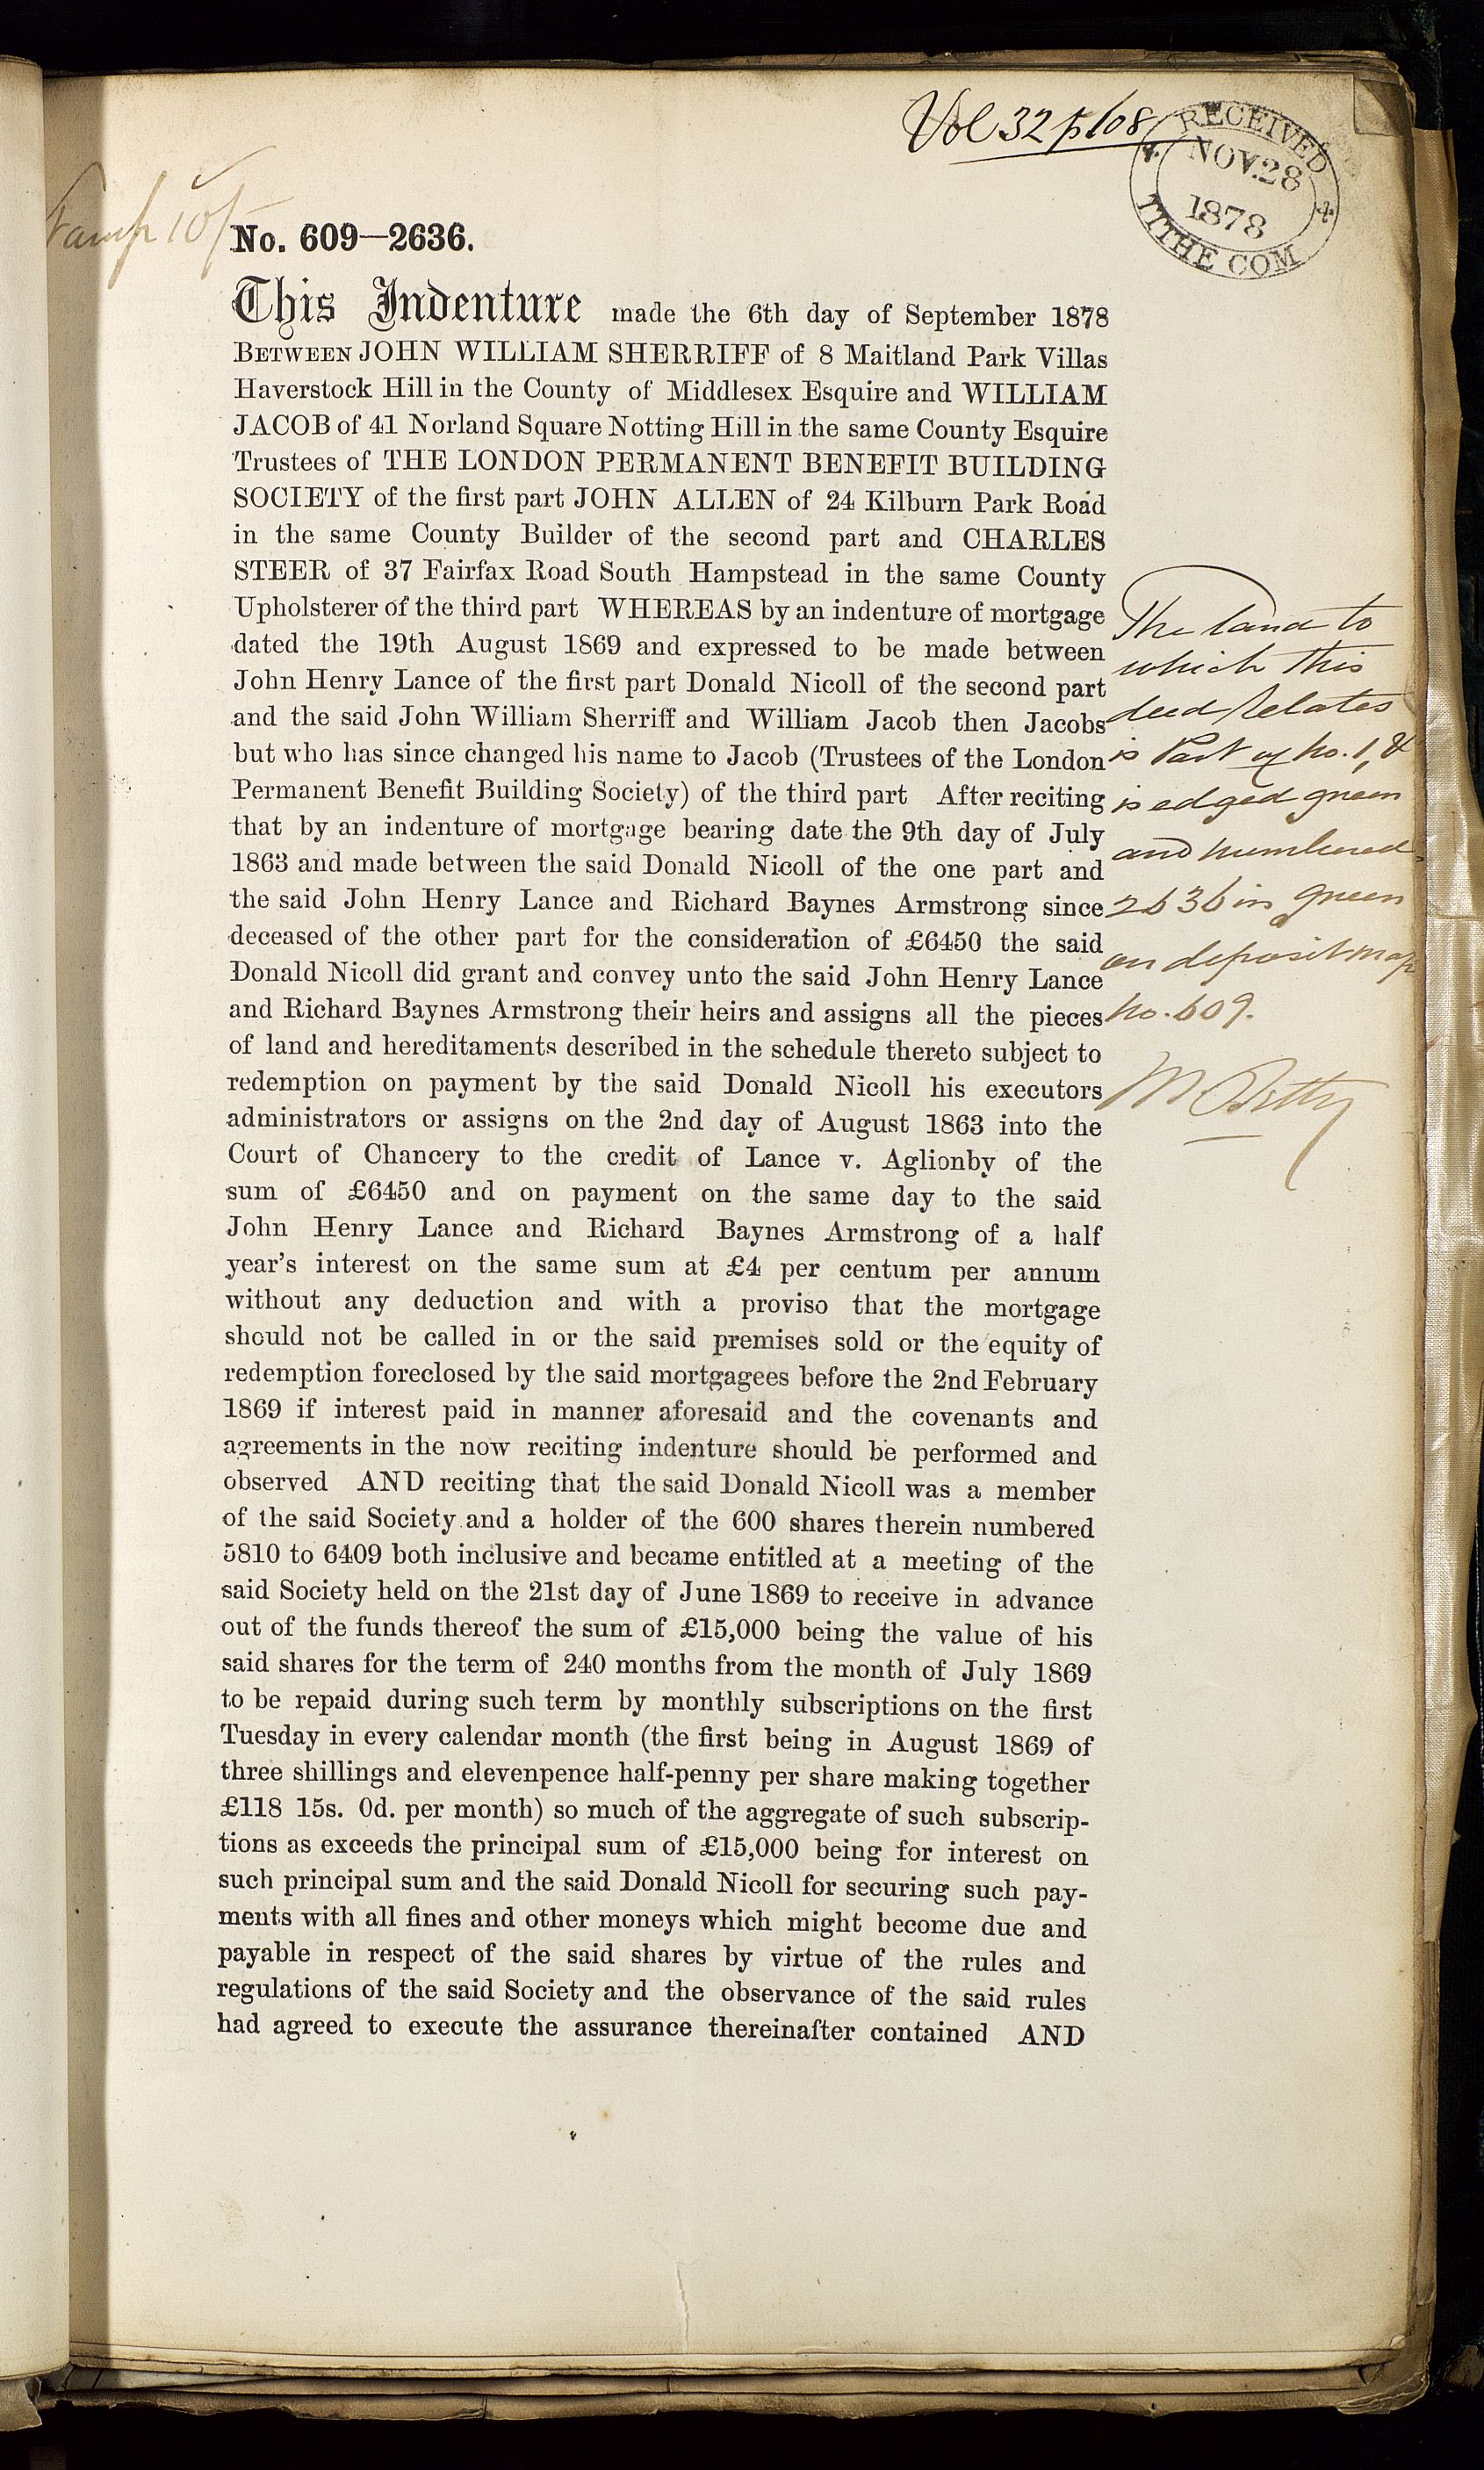 Vol 32 p 108
RECEIVED
NOV. 28
1878
TITHE COM
Stamp 10/-
No. 609—2636.
This Indenture made the 6th day of September 1878
BETWEEN JOHN WILLIAM SHERRIFF of 8 Maitland Park Villas
Haverstock Hill in the County of Middlesex Esquire and WILLIAM
JACOB of 41 Norland Square Notting Hill in the same County Esquire
Trustees of THE LONDON PERMANENT BENEFIT BUILDING
SOCIETY of the first part JOHN ALLEN of 24 Kilburn Park Road
in the same County Builder of the second part and CHARLES
STEER of 37 Fairfax Road South Hampstead in the same County
Upholsterer of the third part WHEREAS by an indenture of mortgage
dated the 19th August 1869 and expressed to be made between
John Henry Lance of the first part Donald Nicoll of the second part
and the said John William Sherriff and William Jacob then Jacobs
but who has since changed his name to Jacob (Trustees of the London
Permanent Benefit Building Society) of the third part After reciting
that by an indenture of mortgage bearing date the 9th day of July
1863 and made between the said Donald Nicoll of the one part and
the said John Henry Lance and Richard Baynes Armstrong since
deceased of the other part for the consideration of £6450 the said
Donald Nicoll did grant and convey unto the said John Henry Lance
and Richard Baynes Armstrong their heirs and assigns all the pieces
of land and hereditaments described in the schedule thereto subject to
redemption on payment by the said Donald Nicoll his executors
administrators or assigns on the 2nd day of August 1863 into the
Court of Chancery to the credit of Lance v. Aglionby of the
sum of £6450 and on payment on the same day to the said
John Henry Lance and Richard Baynes Armstrong of a half
year's interest on the same sum at £4 per centum per annum
without any deduction and with a proviso that the mortgage
should not be called in or the said premises sold or the equity of
redemption foreclosed by the said mortgagees before the 2nd February
1869 if interest paid in manner aforesaid and the covenants and
agreements in the now reciting indenture should be performed and
observed AND reciting that the said Donald Nicoll was a member
of the said Society and a holder of the 600 shares therein numbered
5810 to 6409 both inclusive and became entitled at a meeting of the
said Society held on the 21st day of June 1869 to receive in advance
out of the funds thereof the sum of £15,000 being the value of his
said shares for the term of 240 months from the month of July 1869
to be repaid during such term by monthly subscriptions on the first
Tuesday in every calendar month (the first being in August 1869 of
three shillings and elevenpence half-penny per share making together
£118 15s. 0d. per month) so much of the aggregate of such subscrip-
tions as exceeds the principal sum of £15,000 being for interest on
such principal sum and the said Donald Nicoll for securing such pay-
ments with all fines and other moneys which might become due and
payable in respect of the said shares by virtue of the rules and
regulations of the said Society and the observance of the said rules
had agreed to execute the assurance thereinafter contained AND
The land to
which this
deed relates
is Part of No. 1, &
is edged green
and numbered
2636 in green
on deposit map
No. 609.